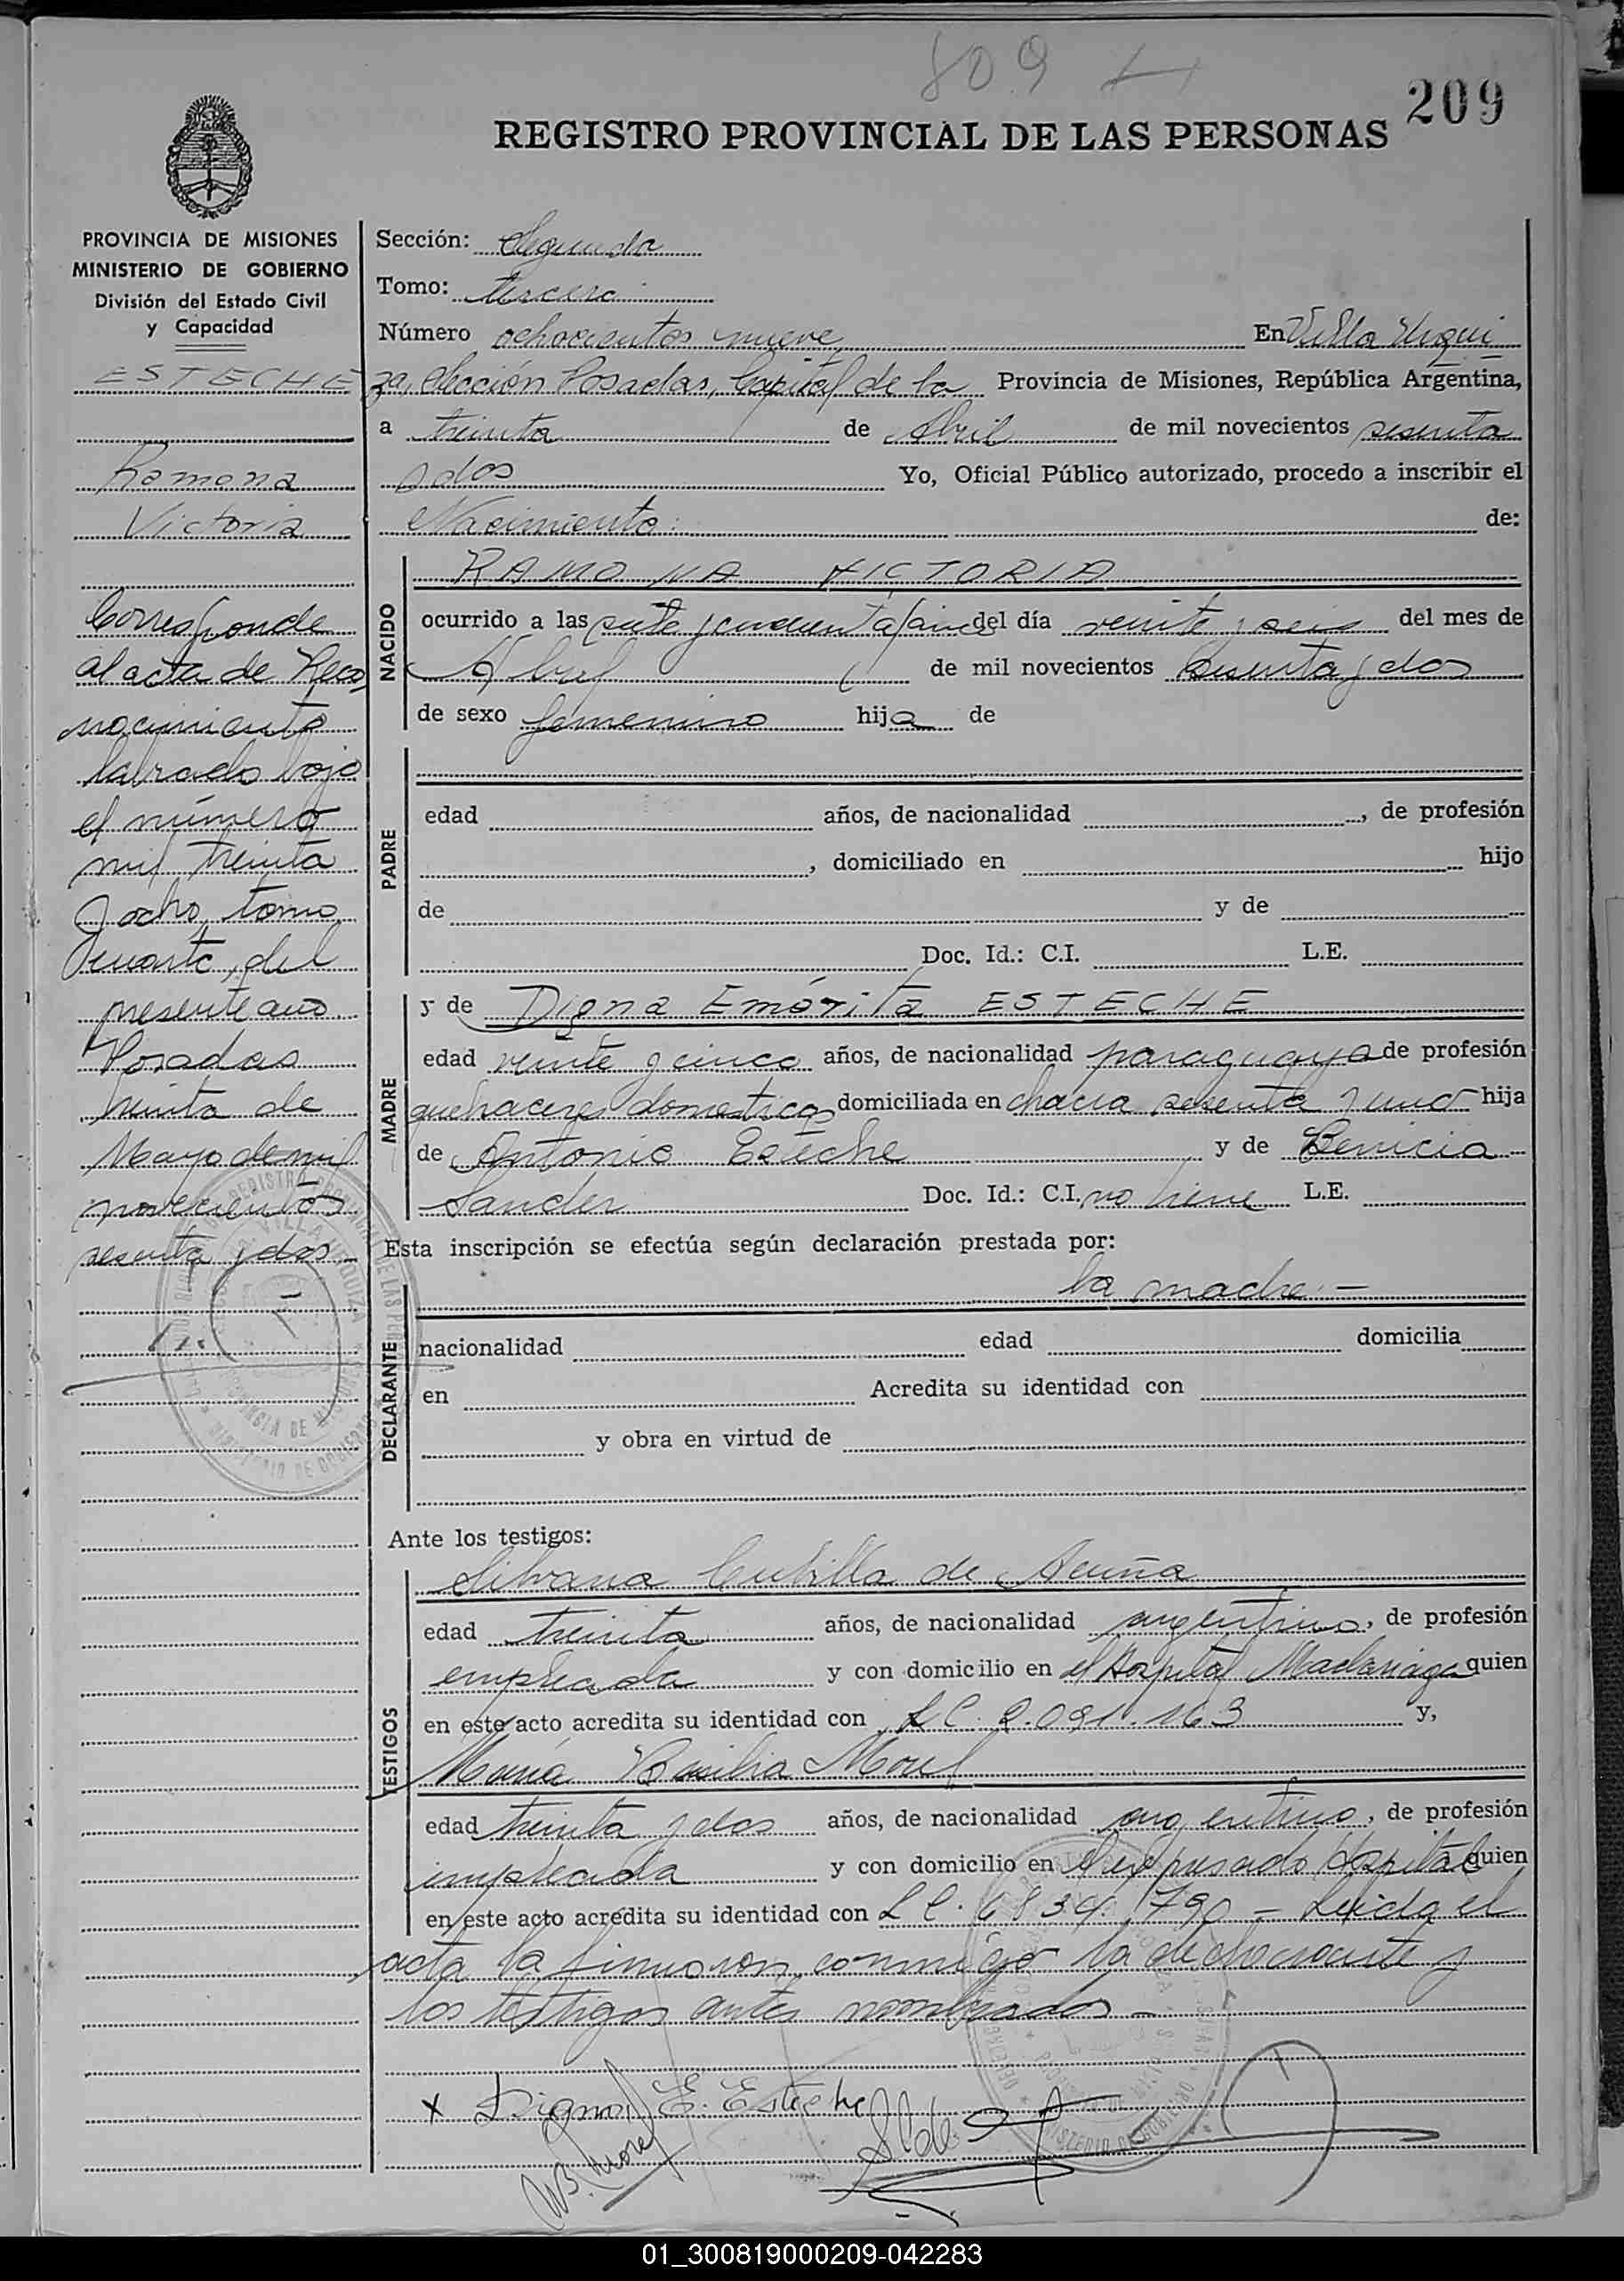 809
209
REGISTRO PROVINCIAL DE LAS PERSONAS
PROVINCIA DE MISIONES
MINISTERIO DE GOBIERNO
División del Estado Civil
y Capacidad
ESTECHE
Ramona
Victoria
Corresponde
al acta de Reco
nocimiento
labrado bajo
el número
mil treinta
y ocho, tomo
cuarto, del
presente año.
Posadas
treinta de
Mayo de mil
novecientos
sesenta y dos.-
Sección: Segunda
Tomo: tercero
Número ochocientos nueve En Villa Urqui
za, Sección Posadas, Capital de la Provincia de Misiones, República Argentina,
a treinta de Abril de mil novecientos sesenta
y dos Yo, Oficial Público autorizado, procedo a inscribir el
Nacimiento de:
NACIDO
RAMONA VICTORIA
ocurrido a las siete y cincuenta del día veinte y seis del mes de
Abril de mil novecientos sesenta y dos
de sexo femenino hija de
PADRE
edad años, de nacionalidad , de profesión
, domiciliado en hijo
de y de
Doc. Id.: C.I. L.E.
MADRE
y de Digna Emérita ESTECHE
edad veinte y cinco años, de nacionalidad paraguaya de profesión
quehaceres domesticos domiciliada en chacra sesenta y uno hija
de Antonio Esteche y de Benicia
Sander Doc. Id.: C.I. no tiene L.E.
Esta inscripción se efectúa según declaración prestada por:
DECLARANTE
la madre.-
nacionalidad edad domicilia
en Acredita su identidad con
y obra en virtud de
Ante los testigos:
TESTIGOS
Silvana Cubilla de Acuña
edad treinta años, de nacionalidad argentina, de profesión
empleada y con domicilio en el Hospital Madariaga quien
en este acto acredita su identidad con L C. 2.091.163 y,
María Basilia Morel
edad treinta y dos años, de nacionalidad argentina, de profesión
empleada y con domicilio en el expresado Hospital quien
en este acto acredita su identidad con L C. 6839.790 - Leída el
acta la firmaron conmigo la declarante y
los testigos antes nombrados -
x Digna E. Esteche
MB. Morel
01_300819000209-042283